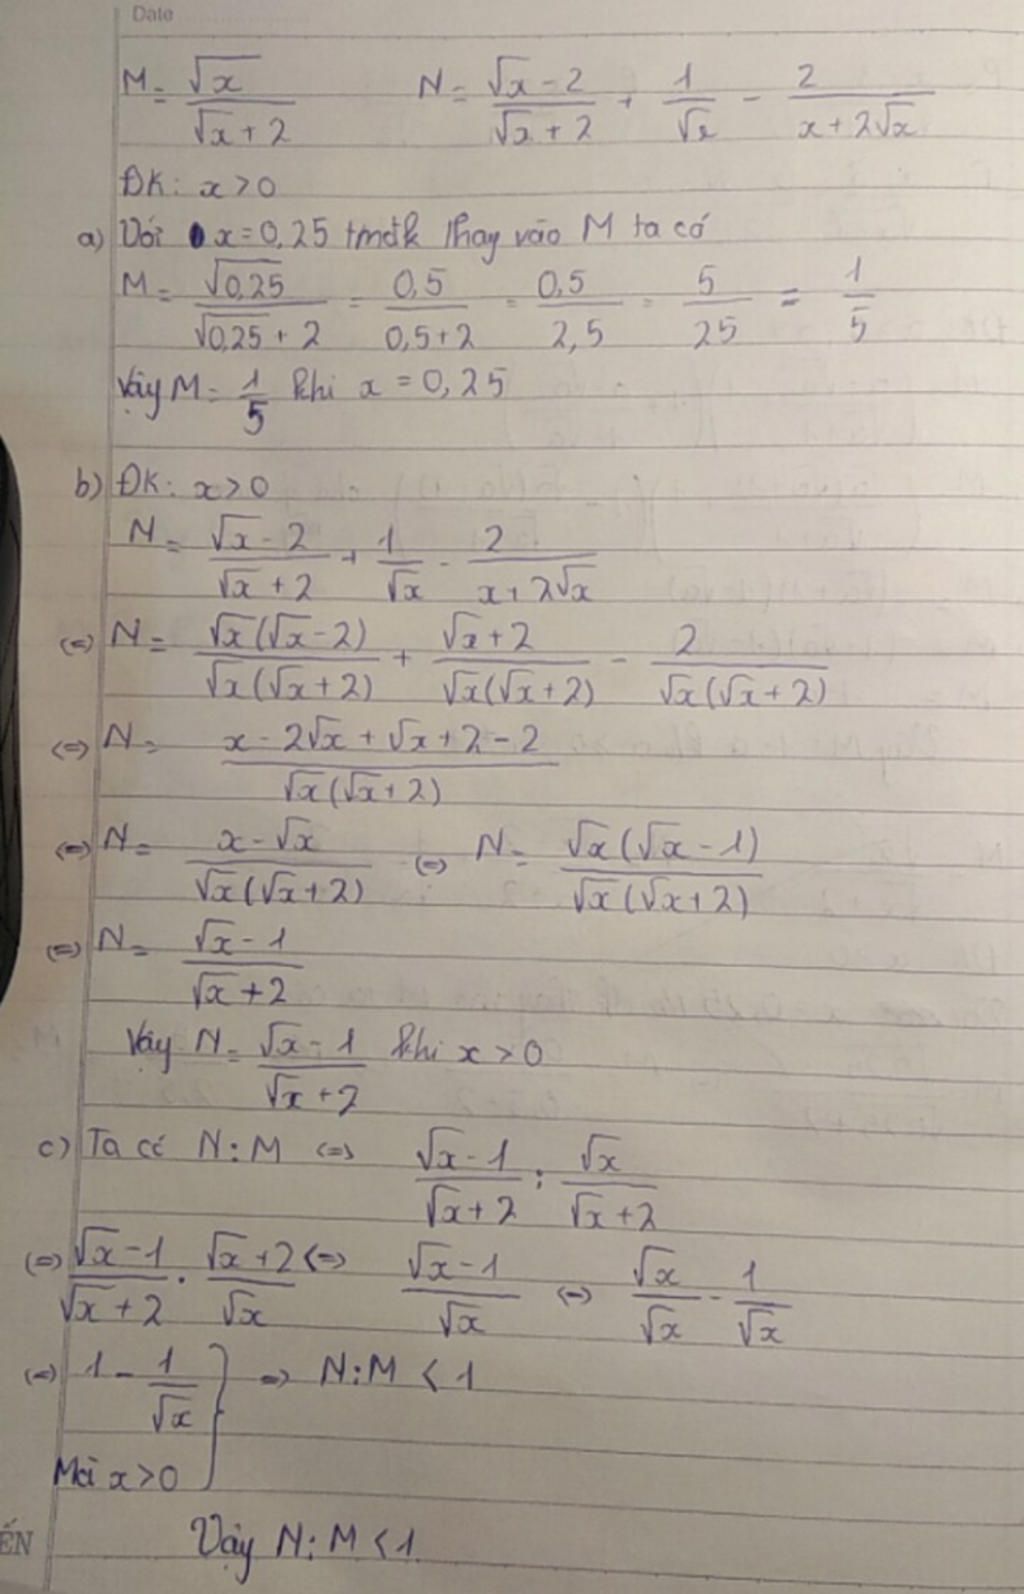 Date
M = √x / (√x + 2)    N = (√x - 2) / (√x + 2) + 1 / √x - 2 / (x + 2√x)
ĐK: x > 0
a) Với x = 0,25 tmđk thay vào M ta có
M = √0,25 / (√0,25 + 2) = 0,5 / (0,5 + 2) = 0,5 / 2,5 = 5 / 25 = 1 / 5
Vậy M = 1/5 khi x = 0,25
b) ĐK: x > 0
N = (√x - 2) / (√x + 2) + 1 / √x - 2 / (x + 2√x)
(=) N = √x(√x - 2) / √x(√x + 2) + (√x + 2) / √x(√x + 2) - 2 / √x(√x + 2)
(=) N = (x - 2√x + √x + 2 - 2) / √x(√x + 2)
(=) N = (x - √x) / √x(√x + 2) (=) N = √x(√x - 1) / √x(√x + 2)
(=) N = (√x - 1) / (√x + 2)
Vậy N = (√x - 1) / (√x + 2) khi x > 0
c) Ta có N : M (=) (√x - 1) / (√x + 2) : √x / (√x + 2)
(=) (√x - 1) / (√x + 2) . (√x + 2) / √x (=) (√x - 1) / √x (=) √x / √x - 1 / √x
(=) 1 - 1 / √x } => N : M < 1
Mà x > 0
Vậy N : M < 1
ẾN